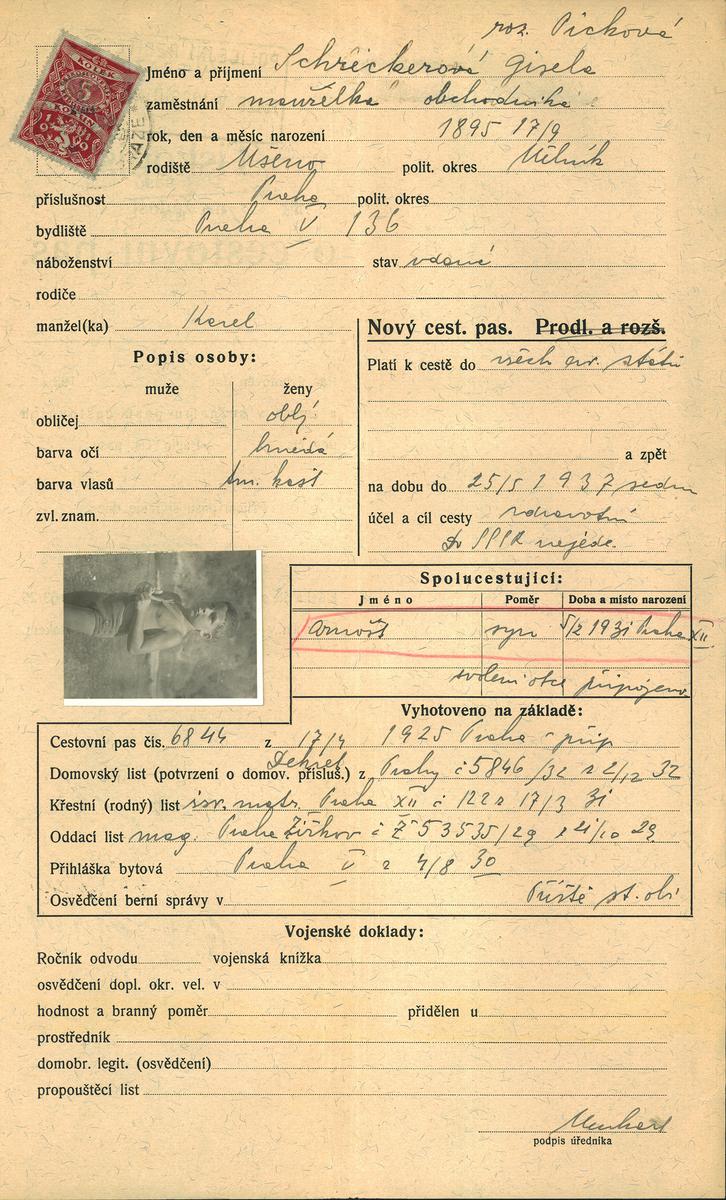 roz. Picková
Jméno a příjmení Schreckerová Gisela
zaměstnání manželka obchodníka
rok, den a měsíc narození 1895 17/9
rodiště Mšeno polit. okres Mělník
příslušnost Praha polit. okres
bydliště Praha V 136
náboženství stav vdaná
rodiče
manžel(ka) Karel
Nový cest. pas. Prodl. a rozš.
Popis osoby:
Platí k cestě do všech ev. států
muže ženy
obličej oblý
barva očí hnědá
a zpět
barva vlasů tm. kašt
na dobu do 25/5 1937
zvl. znam.
účel a cíl cesty zdravotní
Do SSSR nejede.
Spolucestující:
Jméno Poměr Doba a místo narození
Arnošt syn 5/2 1931 Praha XII
svolení otce připojeno
Vyhotoveno na základě:
Cestovní pas čís. 6844 z 17/4 1925 Praha
Dekret
Domovský list (potvrzení o domov. přísluš.) z Prahy č 5846/32 z 2/12 32
Křestní (rodný) list isr. matr. Praha XII č 122 z 17/3 31
Oddací list mag. Praha Žižkov č Ž 53535/29 z 21/10 29
Přihláška bytová Praha V z 4/8 30
Osvědčení berní správy v Příště st. ob.
Vojenské doklady:
Ročník odvodu vojenská knížka
osvědčení dopl. okr. vel. v
hodnost a branný poměr přidělen u
prostředník
domobr. legit. (osvědčení)
propouštěcí list
podpis úředníka